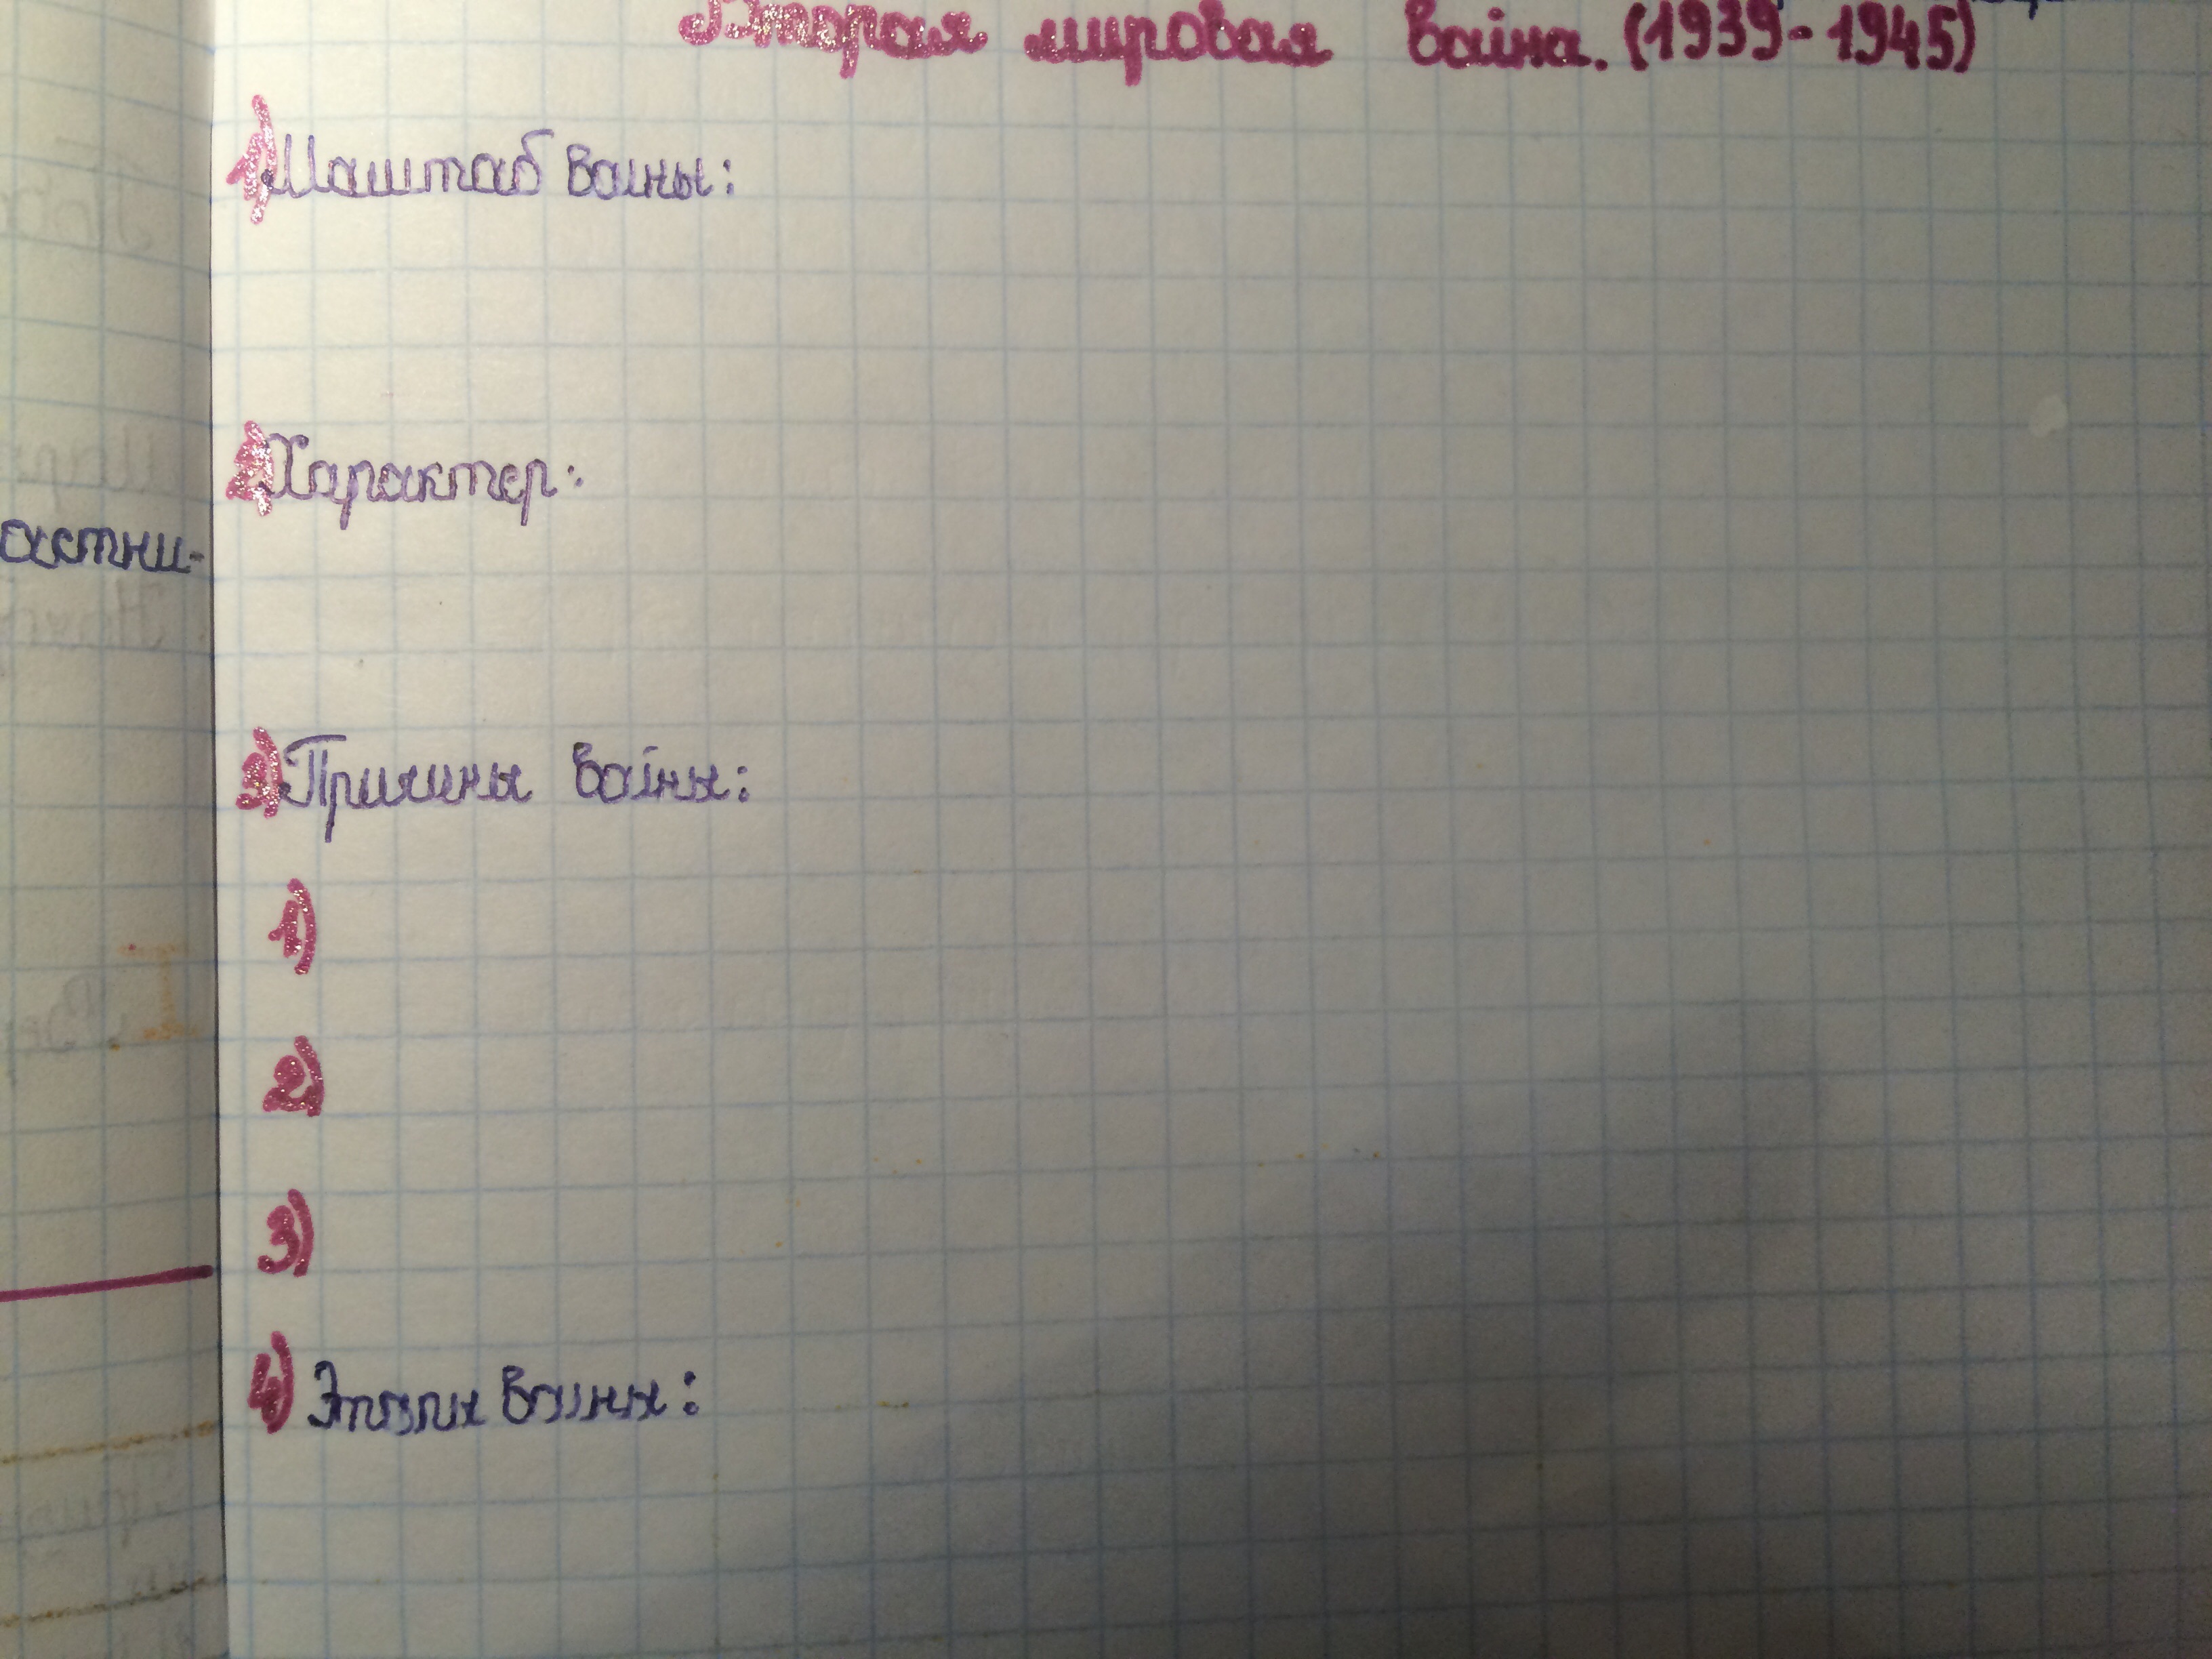 Вторая мировая война. (1939-1945)
1) Маштаб войны:
2) Характер:
астни-
3) Причины войны:
1)
2)
3)
4) Этапы войны: